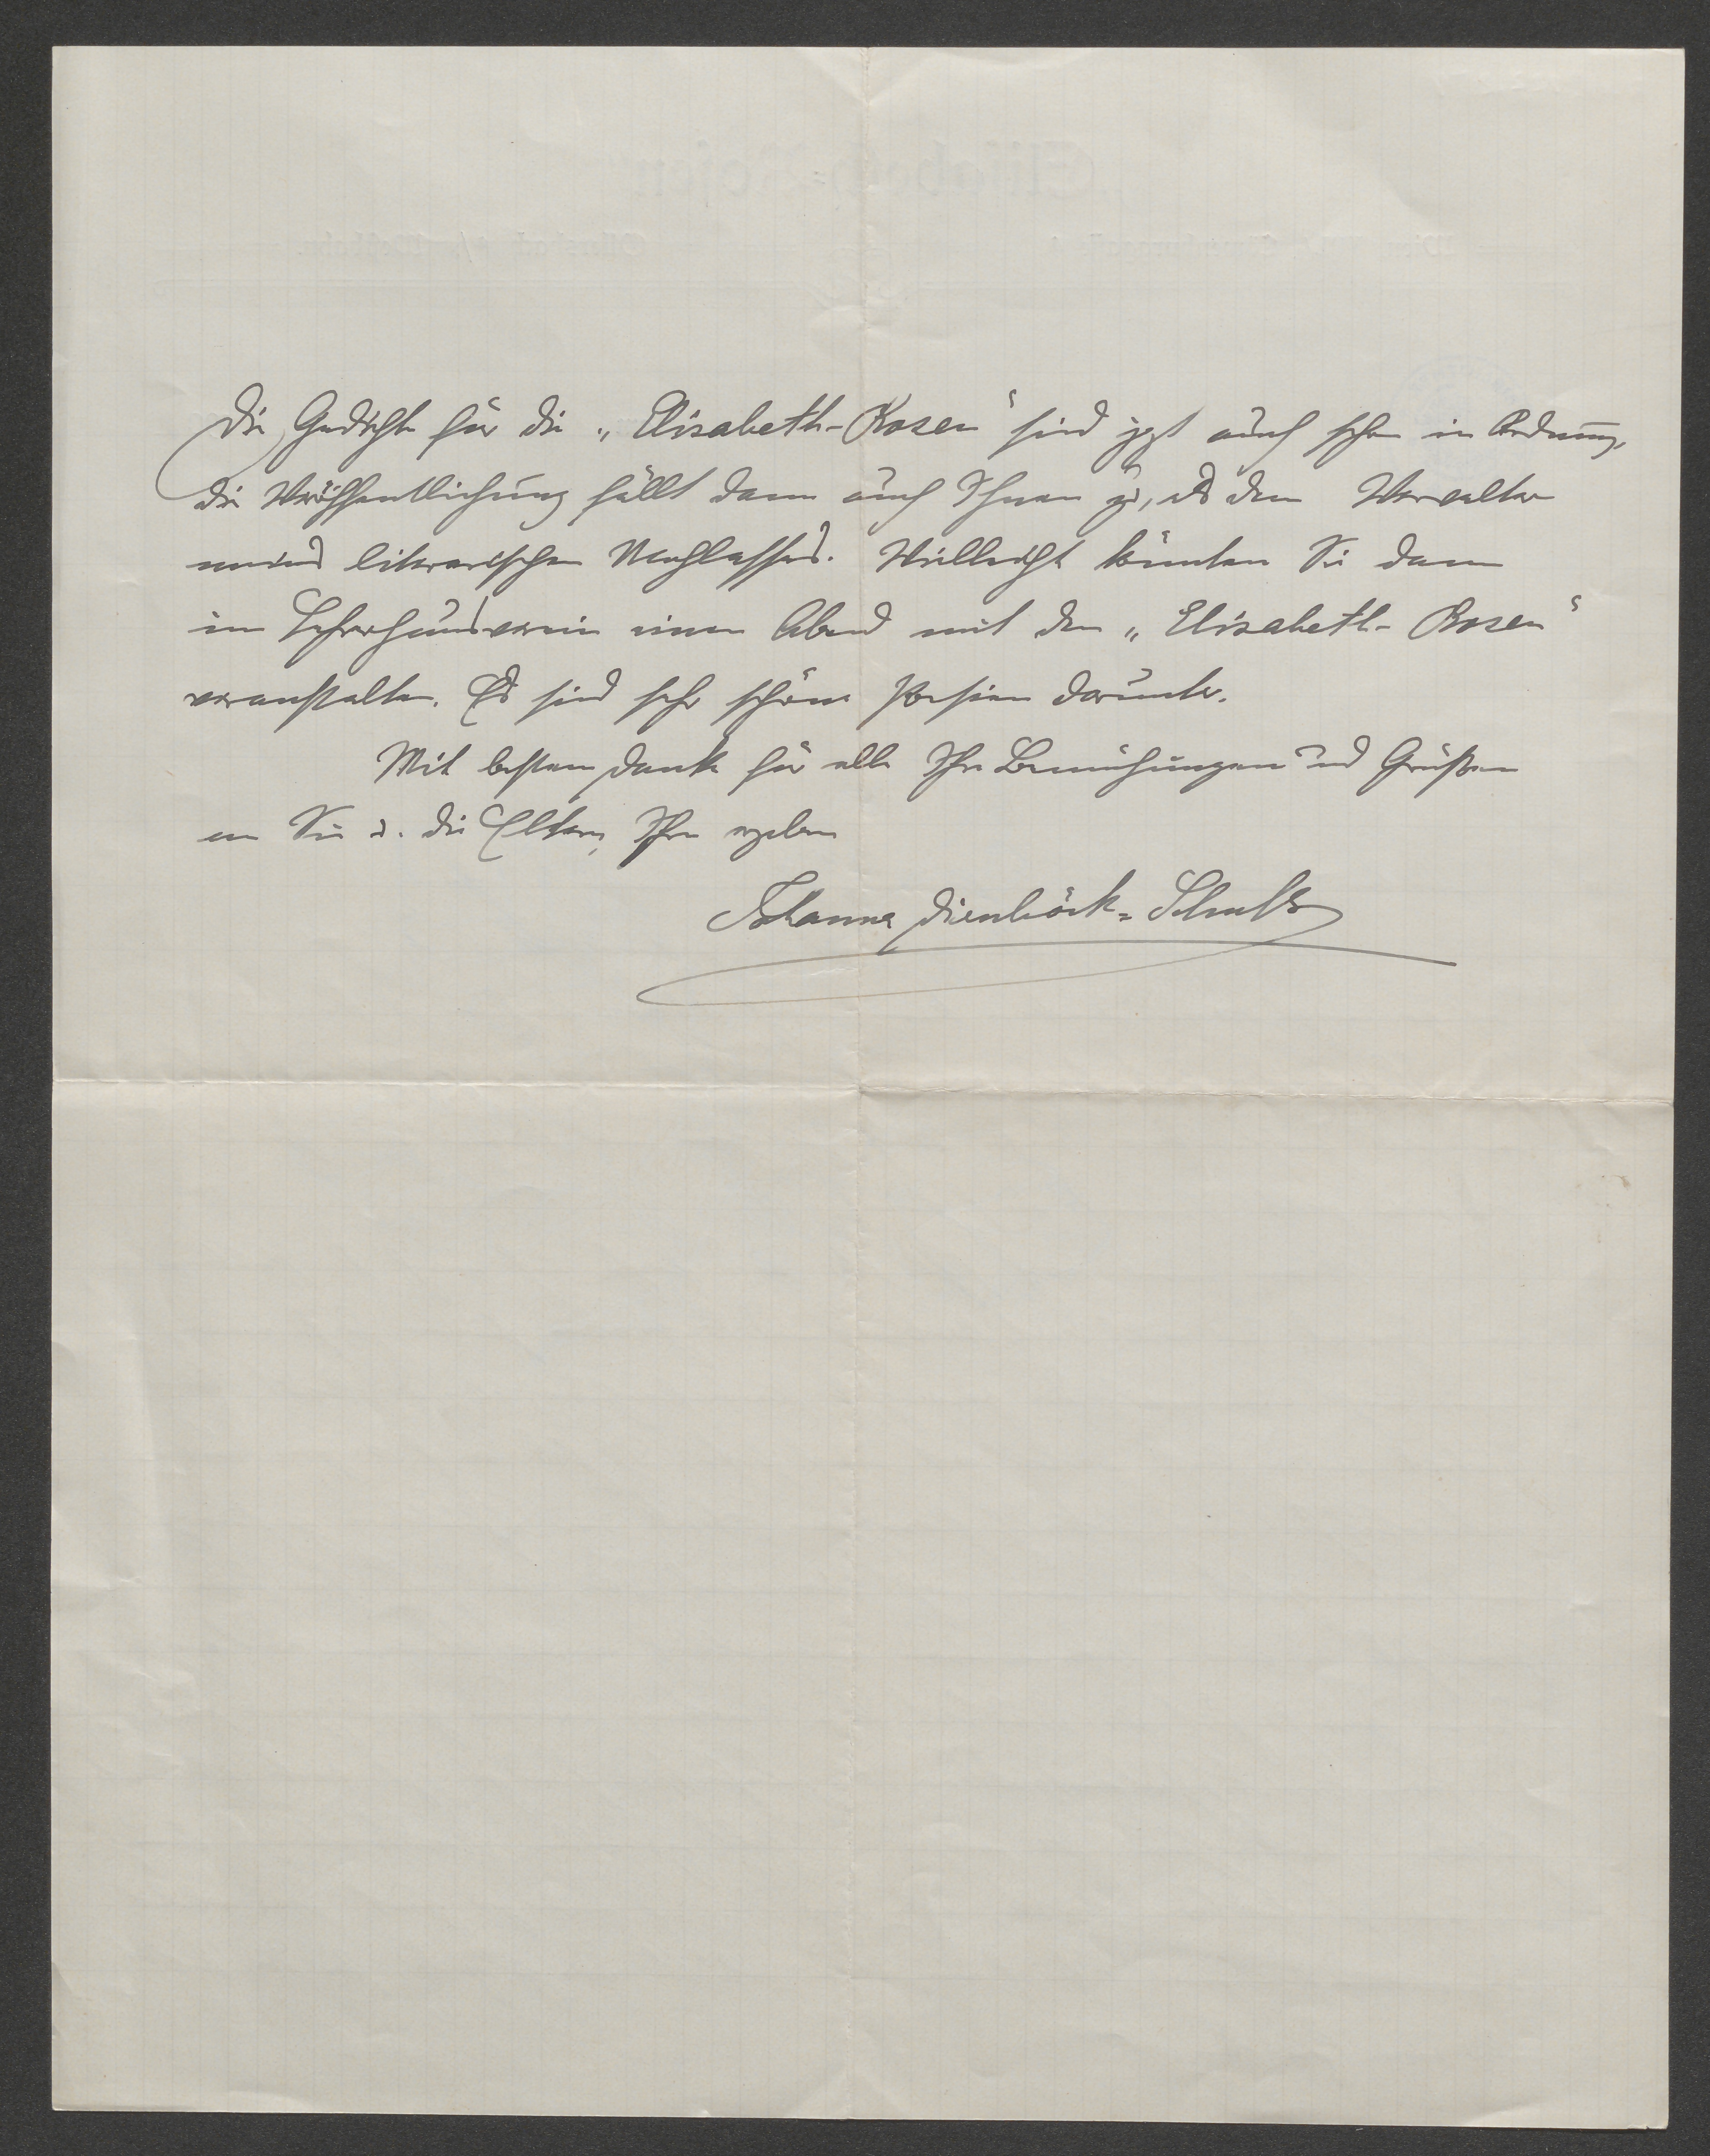 Die Gedichte für die „Elisabeth-Rosen“ sind jetzt auch schon in Ordnung,
die Veröffentlichung fällt dann auch Ihnen zu, als dem Verwalter
meines literarischen Nachlasses. Vielleicht könnten Sie dann
im Lehrerhausverein einen Abend mit den „Elisabeth-Rosen“
veranstalten. Es sind sehr schöne Poesien darunter.
Mit bestem Dank für alle Ihre Bemühungen und Grüßen
an Sie u. die Eltern, Ihre ergebene
Johanna Dienböck-